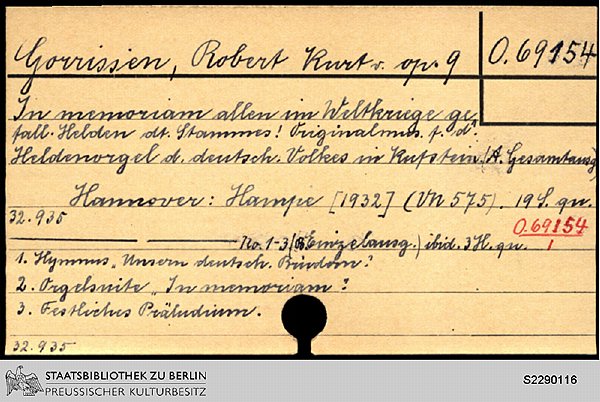 Gorrissen, Robert Kurt v. op. 9
O. 69154
In memoriam allen im Weltkriege ge-
fall. Helden dt. Stammes! Originalmus. f. d.
Heldenorgel d. deutsch. Volkes in Kufstein. (A. Gesamtausg.)
Hannover: Hampe [1932] (VN 575). 19 S. qu.
32.935
O. 69154
1
No. 1-3 (B. Einzelausg.) ibid. 3 H. qu.
1. Hymnus „Unsern deutsch. Brüdern."
2. Orgelsuite „In memoriam."
3. Festliches Präludium.
32.935
STAATSBIBLIOTHEK ZU BERLIN
PREUSSISCHER KULTURBESITZ
S2290116